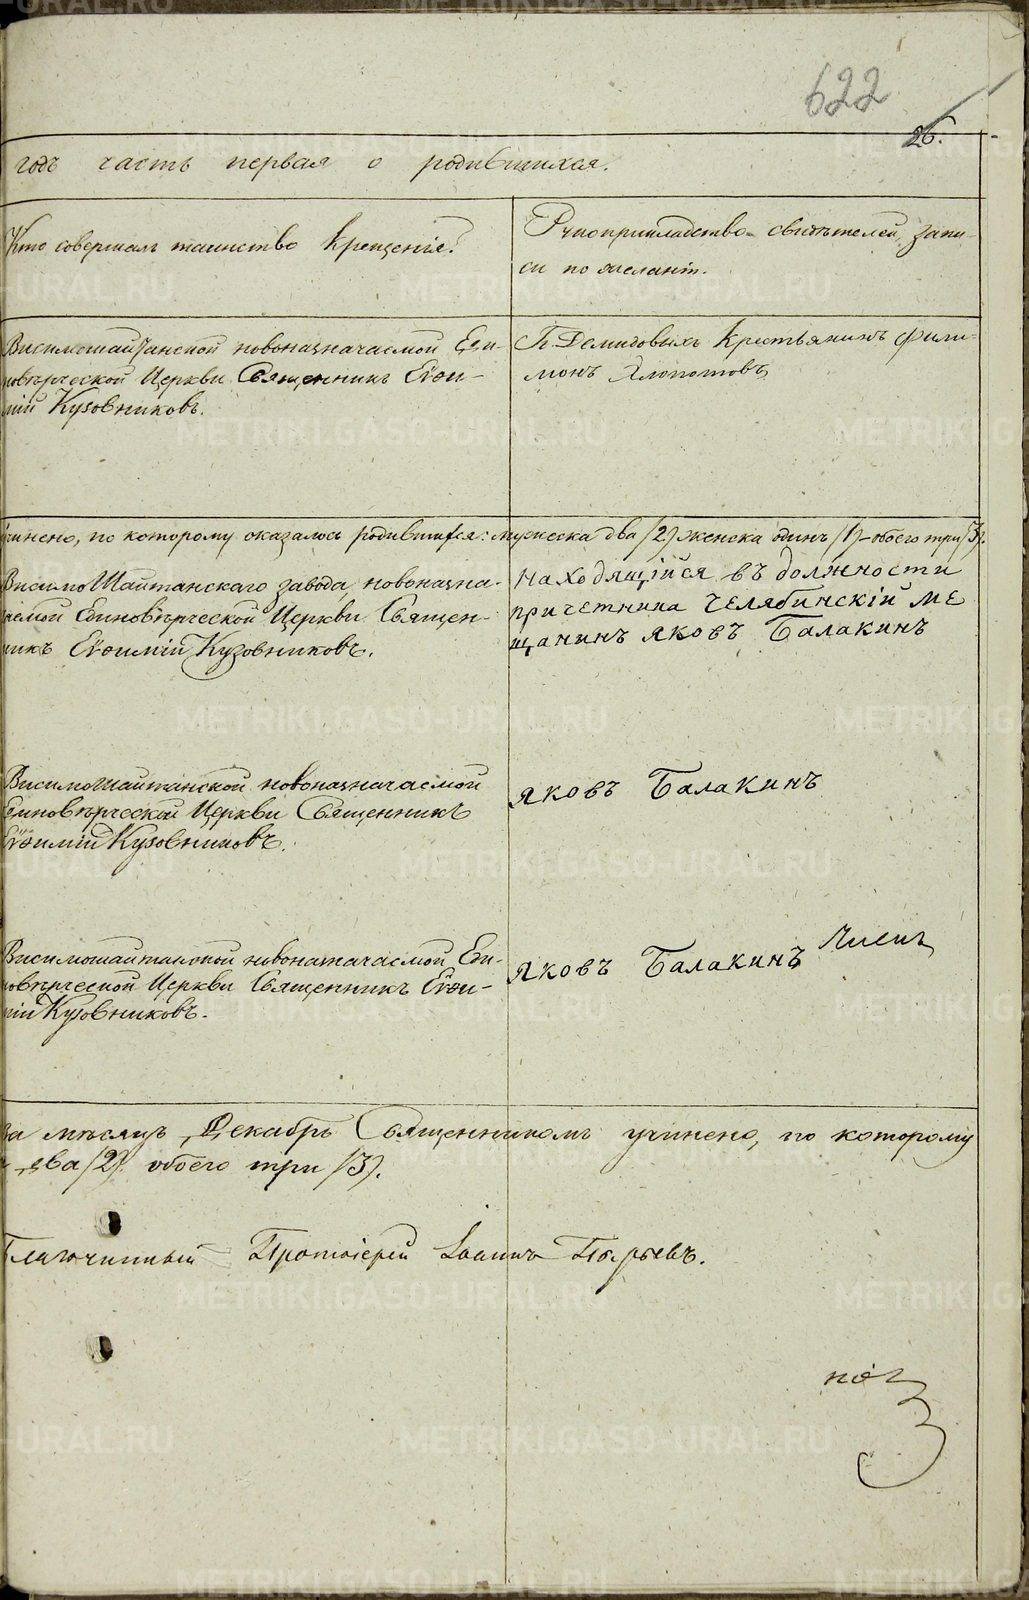 622
26.
годъ часть первая о родившихся.
Кто совершалъ таинство Крещенія?
Рукоприкладство свидѣтелей запи-
си по желанію.
Висимошайтанской новоназначаемой Еди-
новѣрческой Церкви Священникъ Евѳи-
мій Кузовниковъ.
П. Демидовыхъ Крестьянинъ Фили-
монъ Хлопотовъ
чинено, по которому оказалось родившихся: мужеска два /2/ женска одинъ /1/ обоего три /3/.
ВисимоШайтанскаго завода новоназна-
чаемой Единовѣрческой Церкви Священ-
никъ Евѳимій Кузовниковъ.
находящійся въ должности
причетника челябинскій ме
щанинъ яковъ Балакинъ
ВисимоШайтанской новоназначаемой
Единовѣрческой Церкви Священникъ
Евѳимій Кузовниковъ.
яковъ Балакинъ
Висимошайтанской новоназначаемой Еди-
новѣрческой Церкви Священникъ Евѳи-
мій Кузовниковъ.
яковъ Балакинъ
за мѣсяцъ Декабрь Священникомъ учинено, по которому
два /2/ обоего три /3/.
Благочинный Протоіерей Іоаннъ Пырьевъ.
METRIKI.GASO-URAL.RU